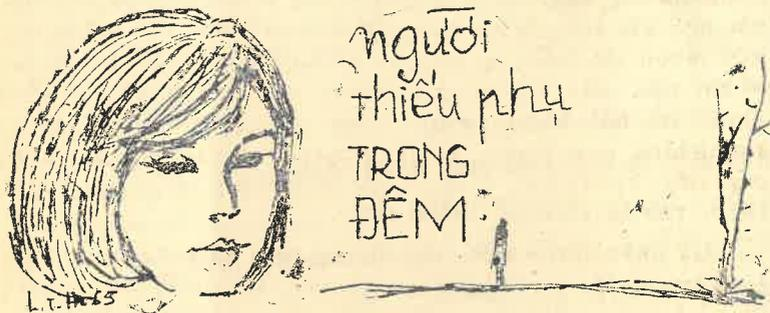 người
thiếu phụ
TRONG
ĐÊM
L.T.H.65